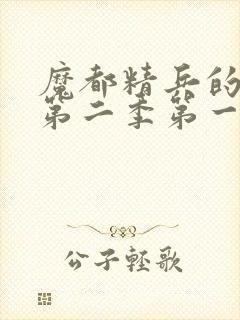 魔都精兵的
第二季第一
公子轻歌